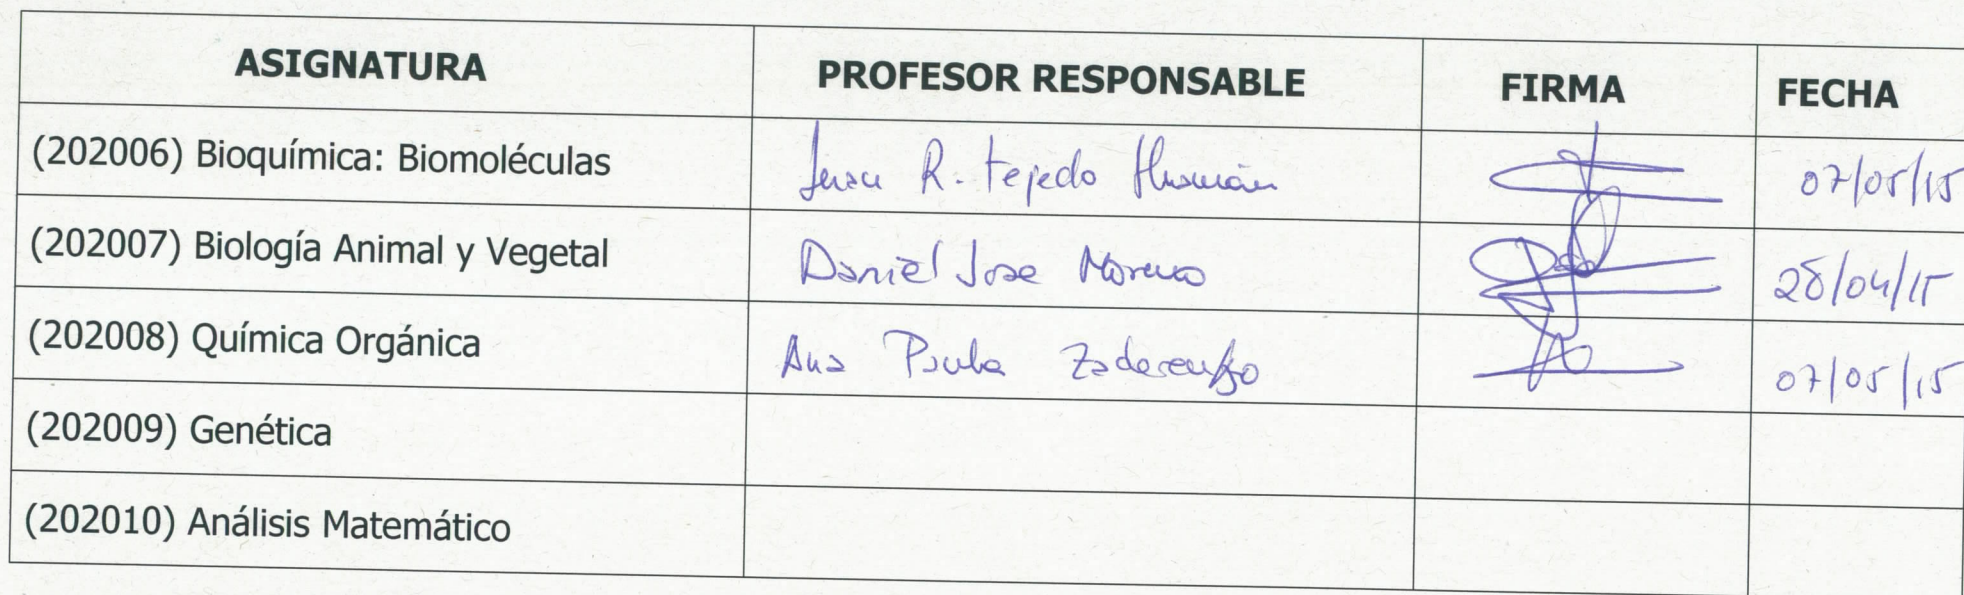 ASIGNATURA PROFESOR RESPONSABLE FIRMA FECHA
(202006) Bioquímica: Biomoléculas R. Tejedo 07/05/15
(202007) Biología Animal y Vegetal Daniel Jose Moreno 28/04/15
(202008) Química Orgánica Ana Paula Zaderenko 07/05/15
(202009) Genética
(202010) Análisis Matemático